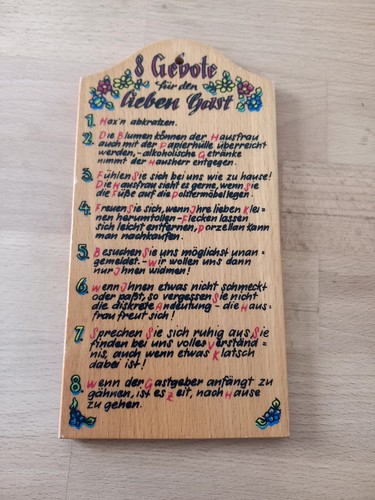 8 Gebote
für den
lieben Gast
1. Hax'n abkratzen.
2. Die Blumen können der Hausfrau
auch mit der Papierhülle überreicht
werden, - alkoholische Getränke
nimmt der Hausherr entgegen.
3. Fühlen Sie sich bei uns wie zu hause!
Die Hausfrau sieht es gerne, wenn Sie
die Füße auf die Polstermöbel legen.
4. Freuen Sie sich, wenn Ihre lieben Klei=
nen herumtollen - Flecken lassen
sich leicht entfernen, Porzellan kann
man nachkaufen.
5. Besuchen Sie uns möglichst unan=
gemeldet. - Wir wollen uns dann
nur Ihnen widmen!
6. Wenn Ihnen etwas nicht schmeckt
oder paßt, so vergessen Sie nicht
die diskrete Andeutung - die Haus=
frau freut sich!
7. Sprechen Sie sich ruhig aus, Sie
finden bei uns volles Verständ=
nis, auch wenn etwas Klatsch
dabei ist!
8. Wenn der Gastgeber anfängt zu
gähnen, ist es Zeit, nach Hause
zu gehen.